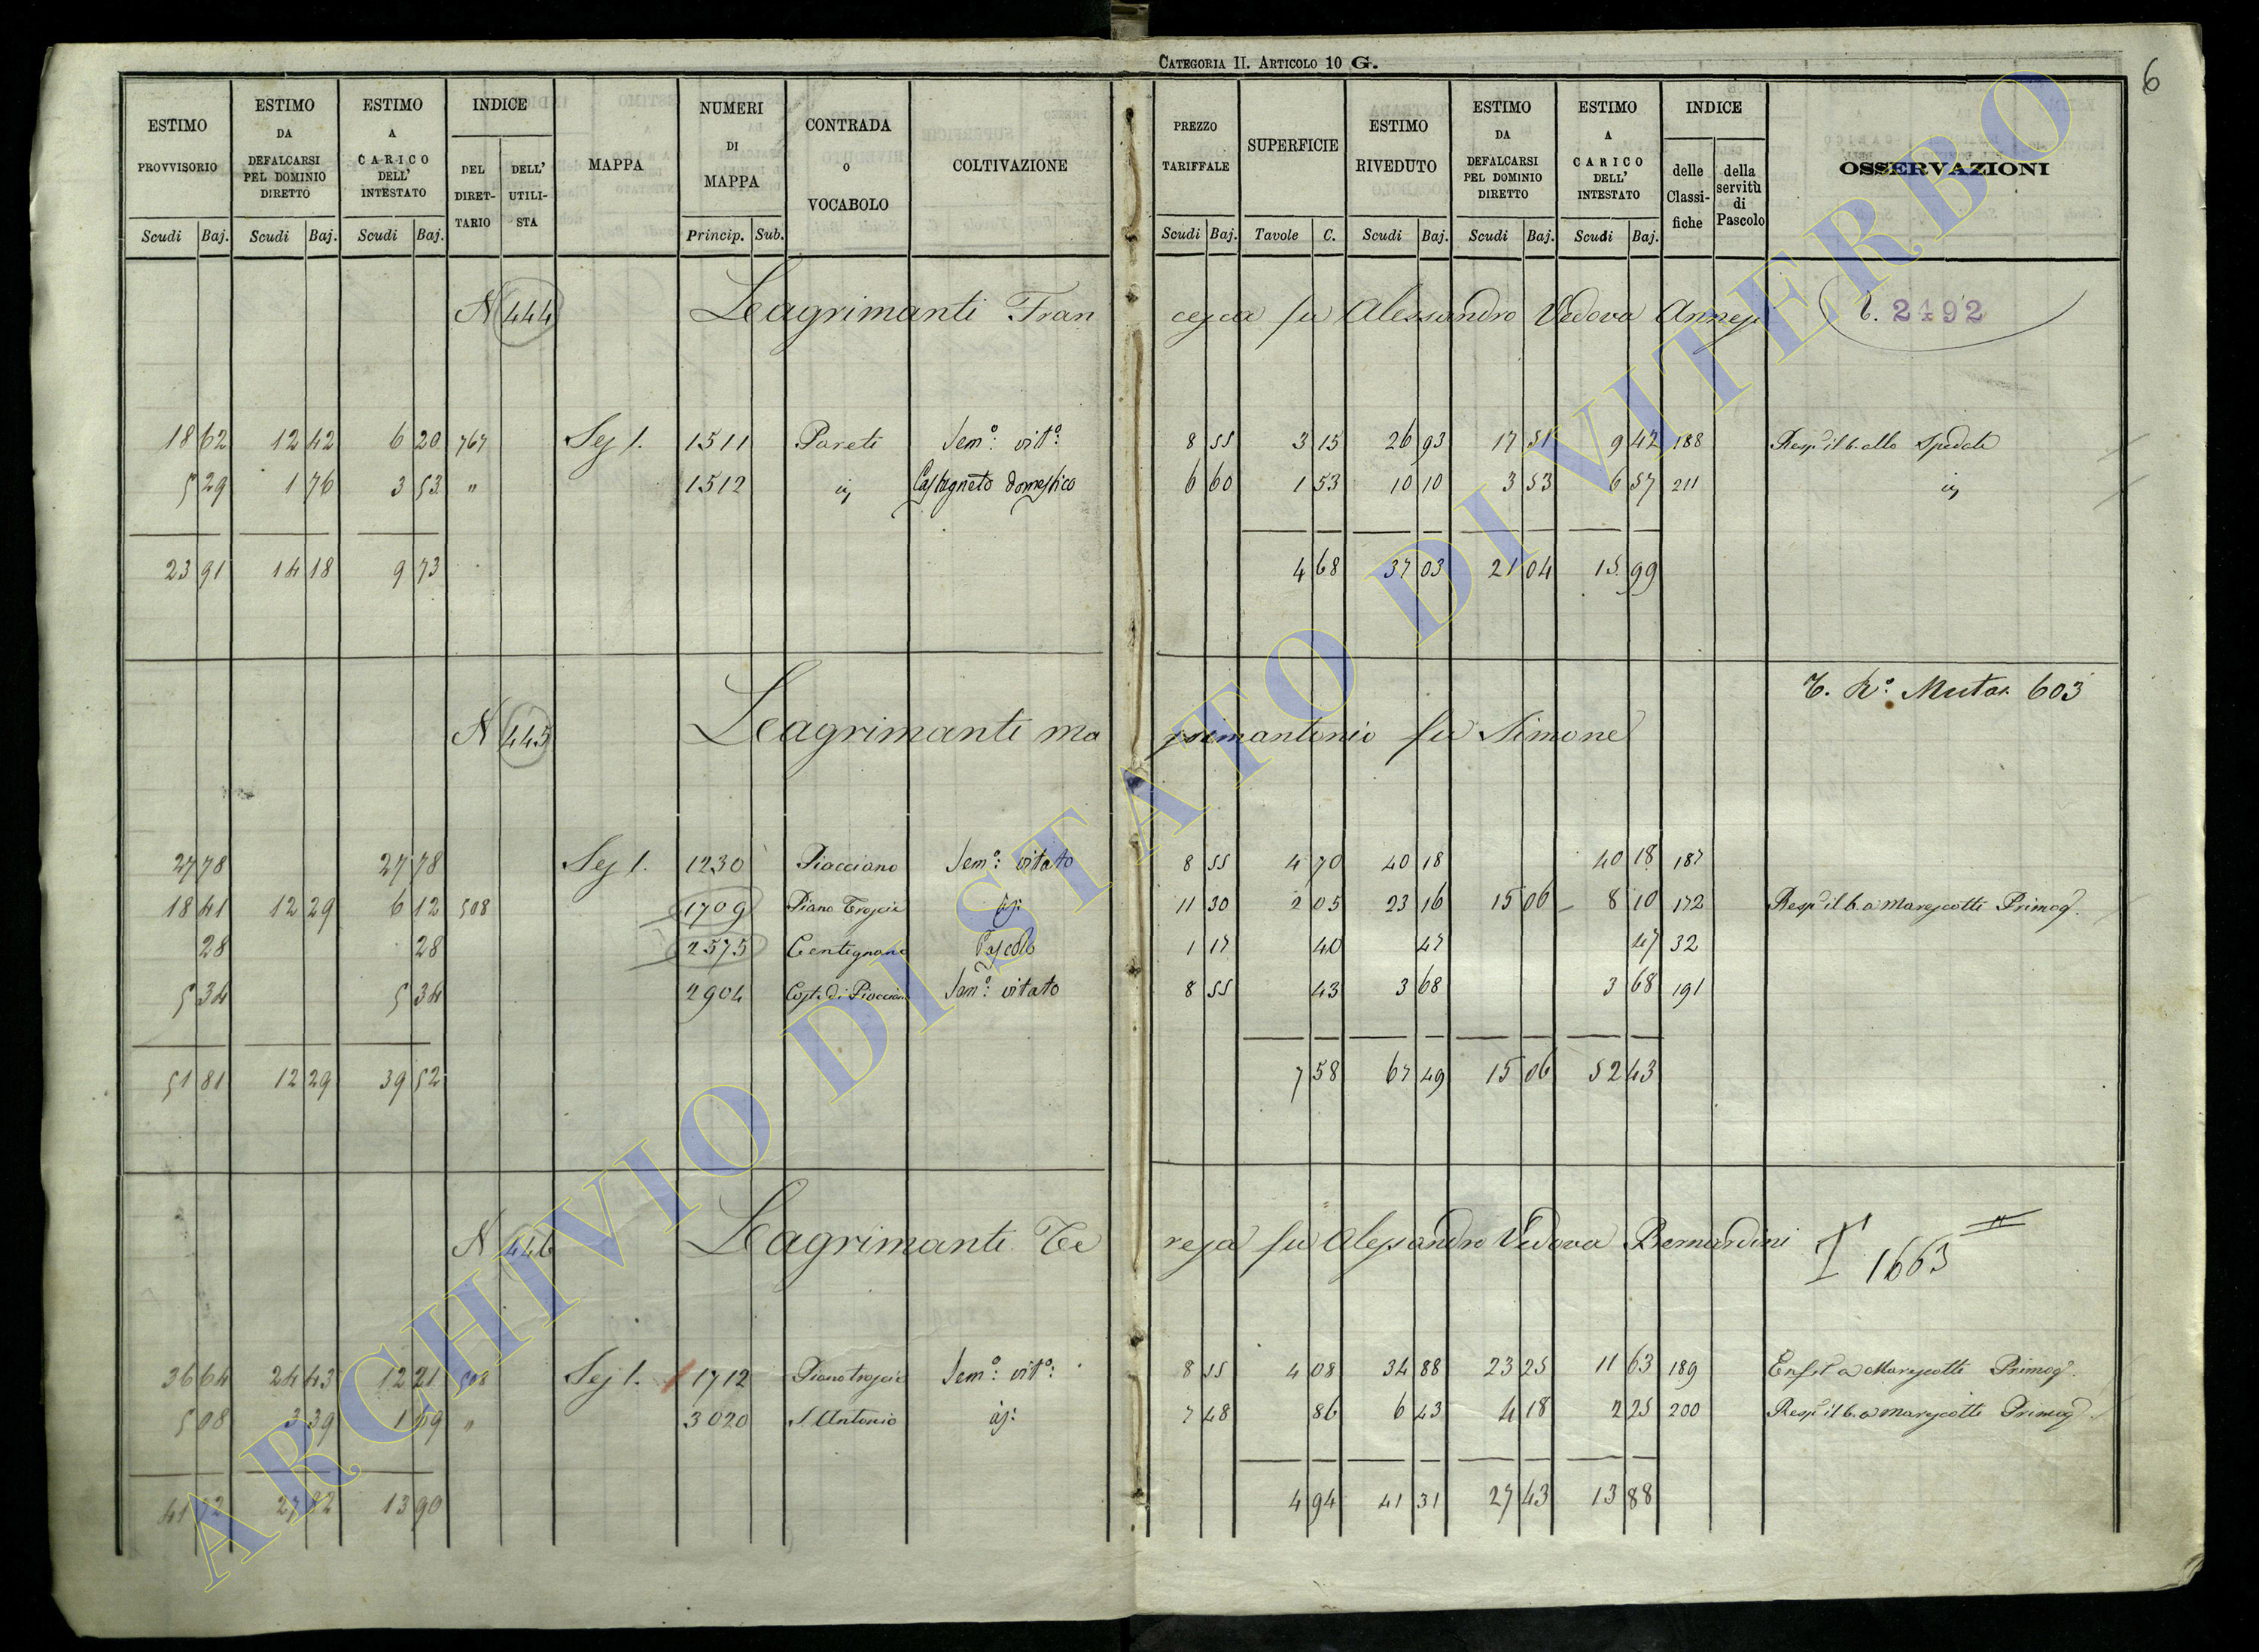 CATEGORIA II. ARTICOLO 10 G.
6
ESTIMO PROVVISORIO | ESTIMO DA DEFALCARSI PEL DOMINIO DIRETTO | ESTIMO A CARICO DELL' INTESTATO | INDICE DEL DIRETTARIO | DELL' UTILISTA | MAPPA | NUMERI DI MAPPA | CONTRADA o VOCABOLO | COLTIVAZIONE | PREZZO TARIFFALE | SUPERFICIE | ESTIMO RIVEDUTO | ESTIMO DA DEFALCARSI PEL DOMINIO DIRETTO | ESTIMO A CARICO DELL' INTESTATO | INDICE delle Classifiche | della servitù di Pascolo | OSSERVAZIONI
Scudi Baj. Scudi Baj. Scudi Baj. Princip. Sub. Scudi Baj. Tavole C. Scudi Baj. Scudi Baj. Scudi Baj.
N 444 Lagrimanti Francesca fu Alessandro Vedova T. 2492
18 62 12 42 6 20 767 Sez 1. 1511 Pareti Sem.º vit.º 8 55 3 15 26 93 17 51 9 42 188 Resp. il 6. allo Spedale
5 29 1 76 3 53 " 1512 Castagneto domestico 6 60 1 53 10 10 3 53 6 57 211
23 91 14 18 9 73 4 68 37 03 21 04 15 99
T. N.º Mutaz. 603
N 445 Lagrimanti Massimantonio fu Simone
27 78 27 78 Sez 1. 1230 Piacciano Sem.º vitato 8 55 4 70 40 18 40 18 187
18 41 12 29 6 12 508 1709 Piano 11 30 2 05 23 16 15 06 8 10 172 Resp. il 6. a Marescotti Primog.
28 28 2575 Centignano Pascolo 1 17 40 47 47 32
5 34 5 34 2904 Costa di Piacciano Sem.º vitato 8 55 43 3 68 3 68 191
51 81 12 29 39 52 7 58 67 49 15 06 52 43
N 446 Lagrimanti Teresa fu Alessandro Vedova Bernardini 1663
36 64 24 43 12 21 508 Sez 1. 1712 Sem.º vit.º 8 55 4 08 34 88 23 25 11 63 189 a Marescotti Primog.
5 08 3 39 1 69 " 3020 S. Antonio 7 48 86 6 43 4 18 2 25 200 Resp. il 6. a Marescotti Primog.
41 72 27 82 13 90 4 94 41 31 27 43 13 88
ARCHIVIO DI STATO DI VITERBO